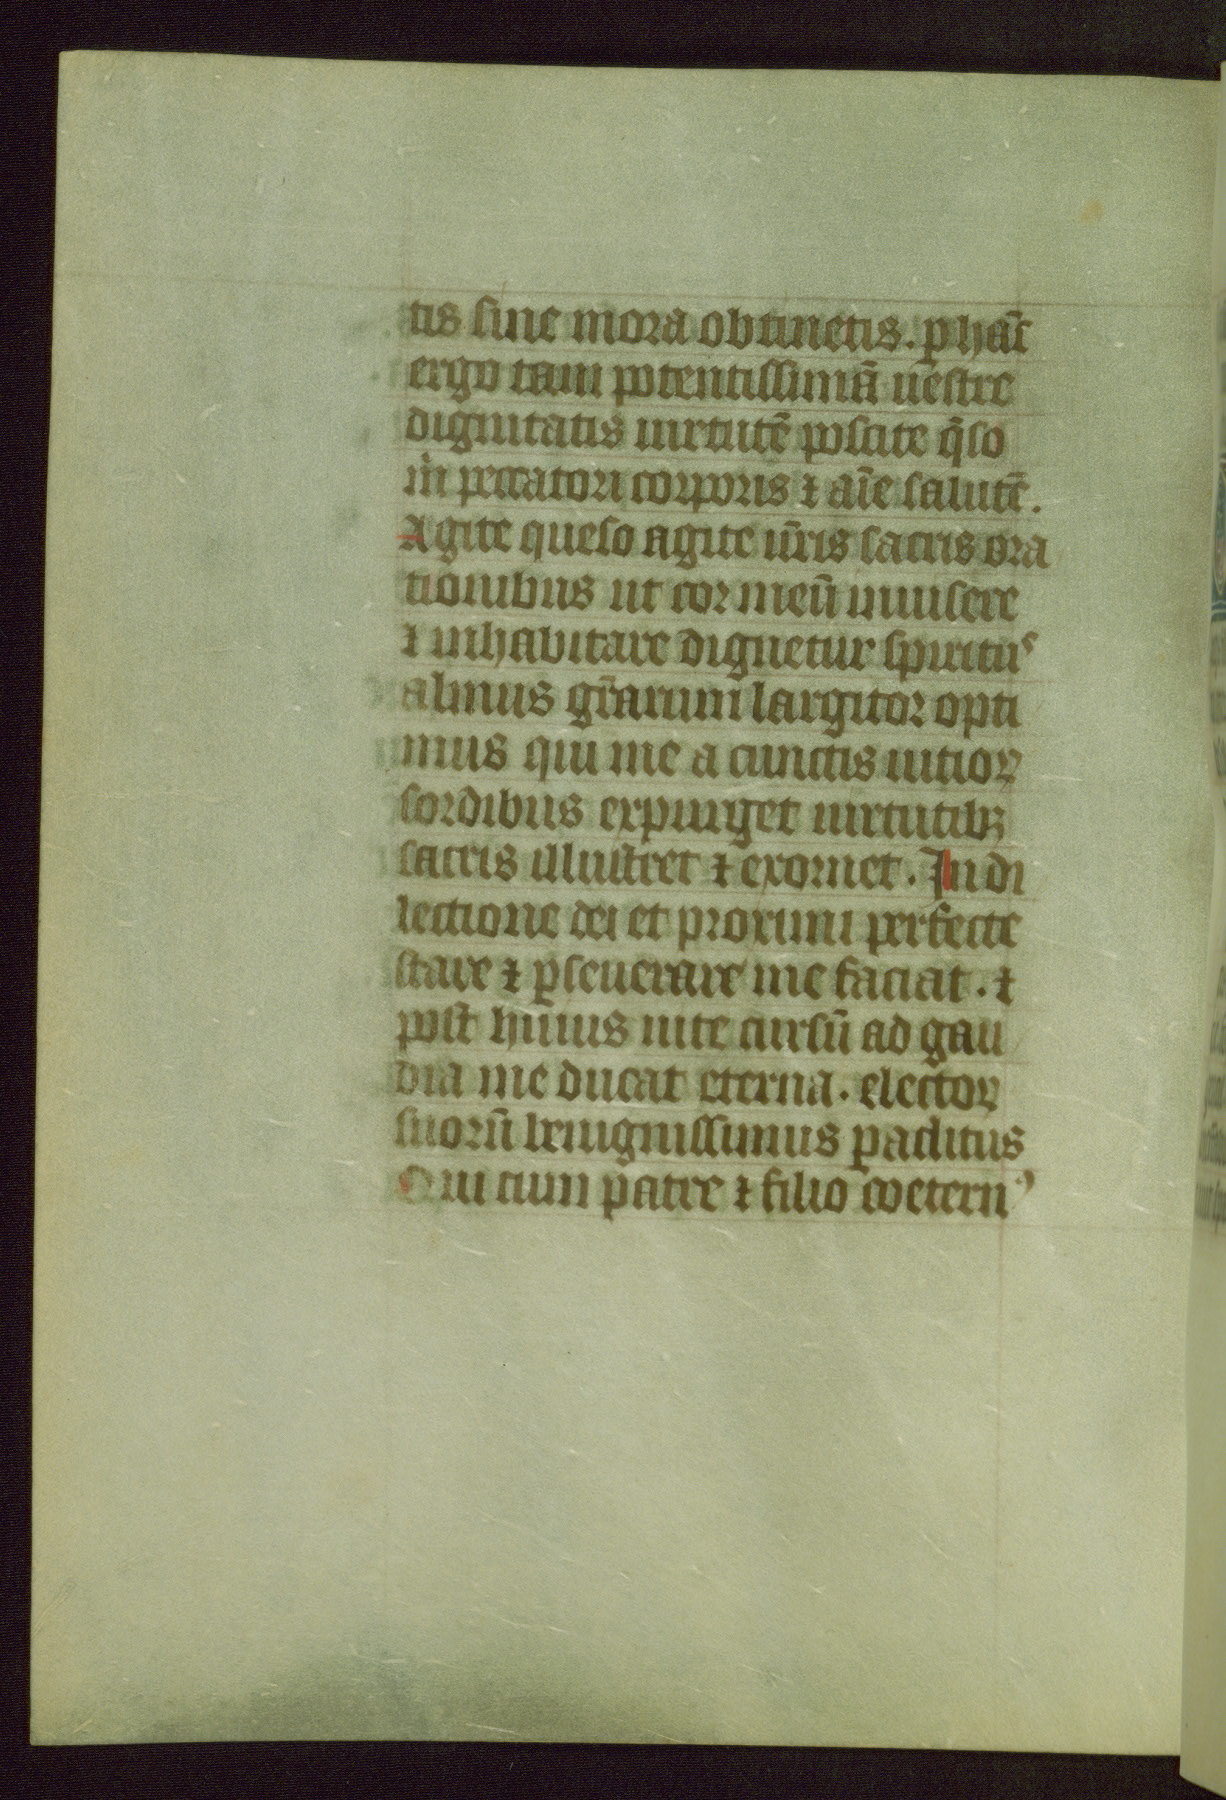 tis sine mora obtinetis. ꝑ hãc
ergo tam potentissimã uestre
dignitatis uirtutẽ poscite q̃so
in peccatori corporis ⁊ aĩe salutẽ.
Agite queso agite ur̃is sacris ora
tionibus ut cor meũ inuisere
⁊ inhabitare dignetur spirituˢ
almus gr̃arum largitor opti
mus qui me a cunctis uitioꝝ
sordibus expurget uirtutibꝫ
sacris illustret ⁊ exornet. In di
lectione dei et proximi perfecte
stare ⁊ ꝑseuerare me faciat. ⁊
post huius uite cursũ ad gau
dia me ducat eterna. electoꝝ
suorũ benignissimus ꝑaclitus
Qui cum patre ⁊ filio coeternꝰ